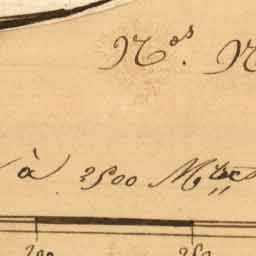 Nos. N
à 2500 Mtres
200 250